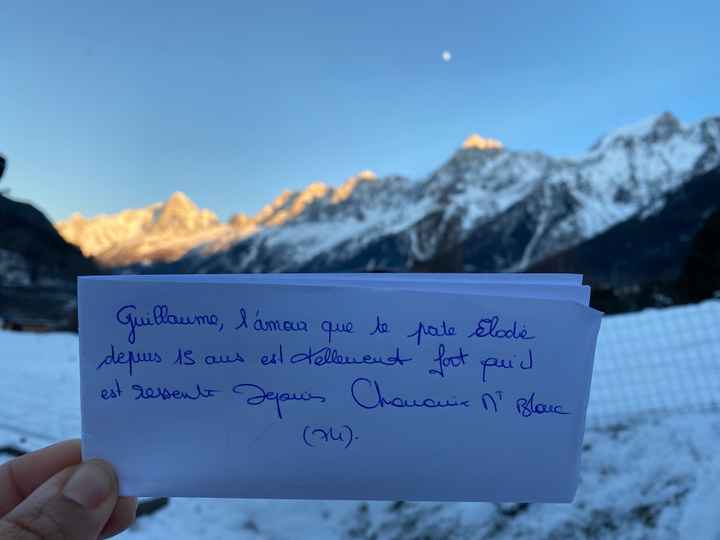 Guillaume, l'amour que te porte Elodie
depuis 15 ans est tellement fort qu'il
est ressenti depuis Chamonix Mt Blanc
(74).